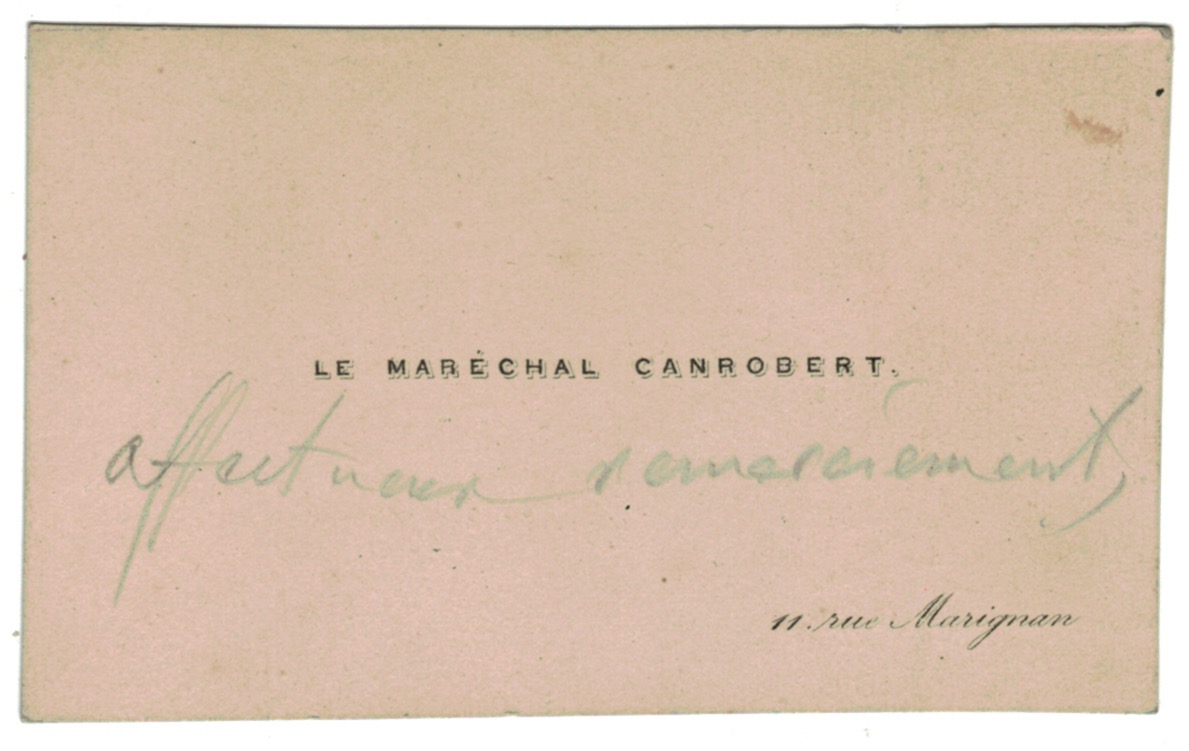 LE MARÉCHAL CANROBERT.
affectueux remerciements
11. rue Marignan